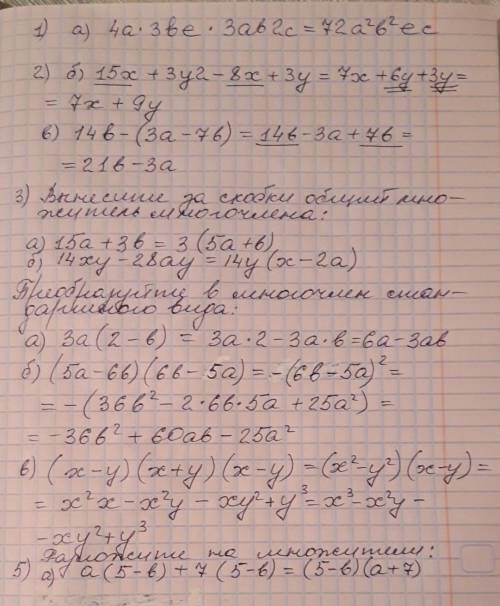 1) а) 4а·3вe·3ав2c=72а²в²ec
2) б) 15x + 3y2 - 8x + 3y = 7x + 6y + 3y =
= 7x + 9y
в) 14в-(3а-7в) = 14в-3а+7в =
= 21в-3а
3) Вынесите за скобки общий мно-
житель многочлена:
а) 15а+3в = 3(5а+в)
б) 14xy-28ay = 14y(x-2a)
Преобразуйте в многочлен стан-
дартного вида:
а) 3а(2-в) = 3а·2-3а·в=6а-3ав
б) (5а-6в)(6в-5а)=-(6в-5а)²=
= -(36в²-2·6в·5а+25а²) =
= -36в²+60ав-25а²
в) (x-y)(x+y)(x-y)=(x²-y²)(x-y)=
= x²x-x²y-xy²+y³=x³-x²y-
-xy²+y³
Разложите на множители:
5) а) а(5-в)+7(5-в)=(5-в)(а+7)